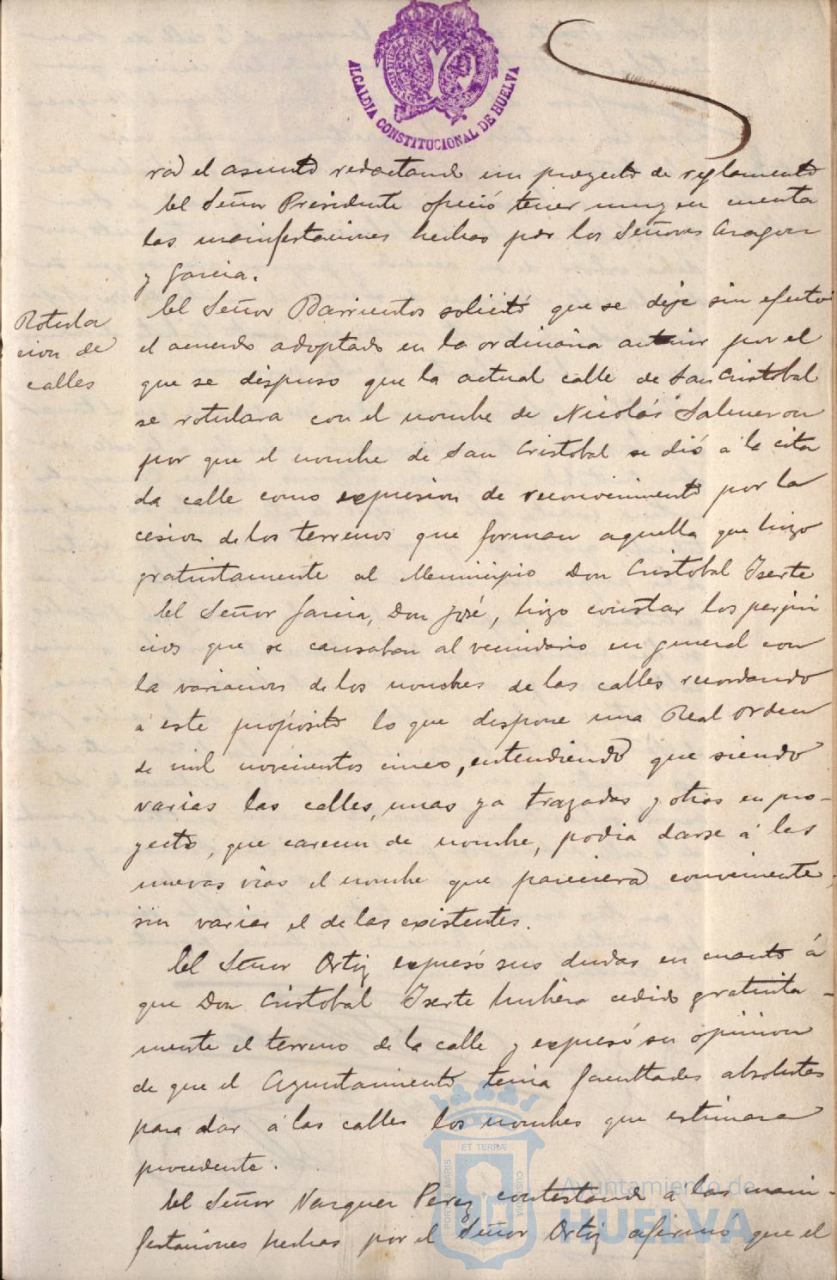 ALCALDIA CONSTITUCIONAL DE HUELVA
rad el asunto redactando un proyecto de reglamento
El Señor Presidente ofreció tener muy en cuenta
las manifestaciones hechas por los Señores Aragon
y Garcia.
Rotula
cion de
calles
El Señor Barrientos solicitó que se deje sin efecto
el acuerdo adoptado en la ordinaria anterior por el
que se dispuso que la actual calle de San Cristobal
se rotulara con el nombre de Nicolás Salmeron
por que el nombre de San Cristobal se dió á la cita
da calle como expresion de reconocimiento por la
cesion de los terrenos que forman aquella que hizo
gratuitamente al Municipio Don Cristobal Iserte
El Señor Garcia, Don José, hizo constar los perjui
cios que se causaban al vecindario en general con
la variacion de los nombres de las calles recordando
á este propósito lo que dispone una Real orden
de mil novecientos cinco, entendiendo que siendo
varias las calles, unas ya trazadas y otras en pro-
yecto, que carecen de nombre, podia darse á las
nuevas vias el nombre que pareciera conveniente,
sin variar el de las existentes.
El Señor Ortiz expresó sus dudas en cuanto á
que Don Cristobal Iserte hubiera cedido gratuita-
mente el terreno de la calle y expresó su opinion
de que el Ayuntamiento tenia facultades absolutas
para dar á las calles los nombres que estimara
procedente.
El Señor Vazquez Perez contestando á las mani-
festaciones hechas por el Señor Ortiz afirmó que el
Ayuntamiento de
HUELVA